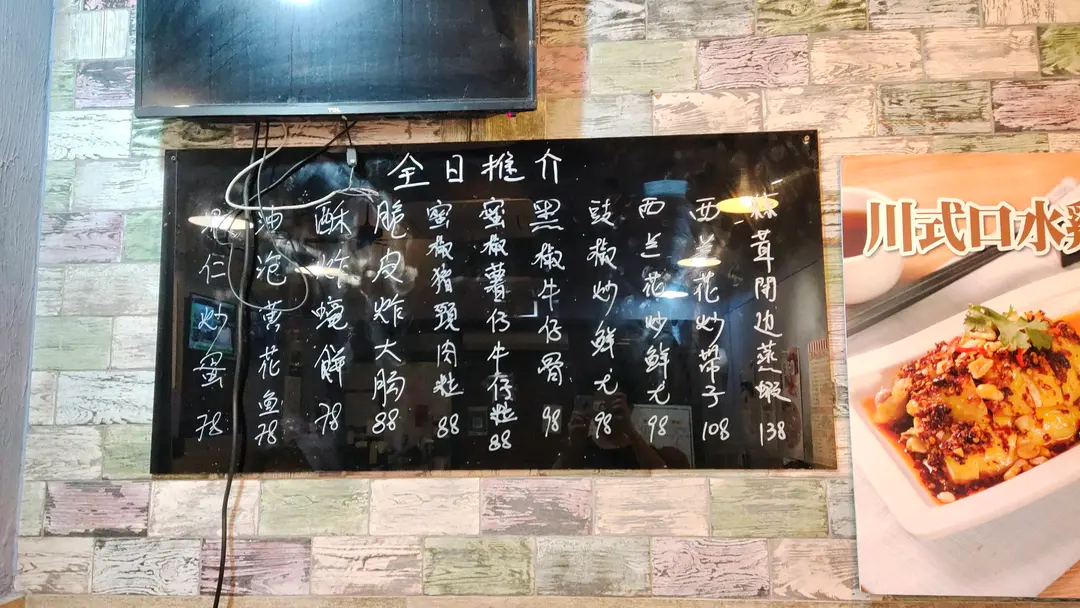 全日推介
蒜茸開边蒸蝦 138
西兰花炒帶子 108
西兰花炒鮮尤 98
豉椒炒鮮尤 98
黑椒牛仔骨 98
蜜椒薯仔牛仔粒 88
蜜椒豬頸肉粒 88
脆皮炸大肠 88
酥炸蠔餅 78
油泡黄花鱼 78
仁炒蛋 78
川式口水雞